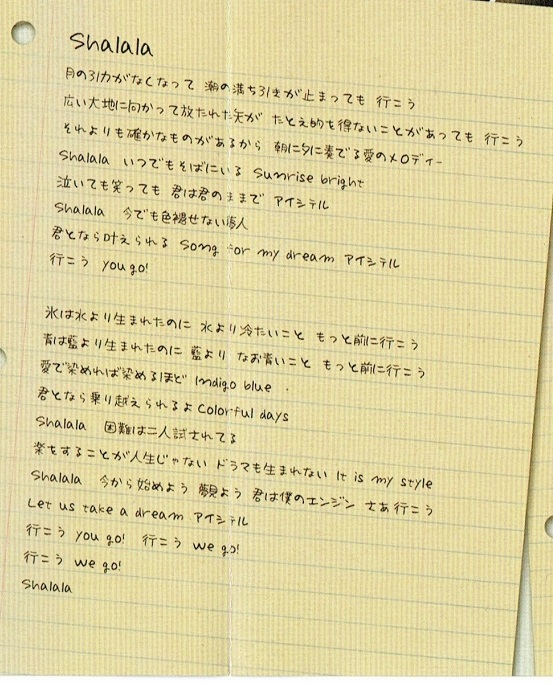 Shalala
月の引力がなくなって 潮の満ち引きが止まっても 行こう
広い大地に向かって放たれた矢が たとえ的を得ないことがあっても 行こう
それよりも確かなものがあるから 朝に夕に奏でる愛のメロディー
Shalala いつでもそばにいる Sunrise bright
泣いても笑っても 君は君のままで アイシテル
Shalala 今でも色褪せない
君となら叶えられる Song for my dream アイシテル
行こう you go!
氷は水より生まれたのに 水より冷たいこと もっと前に行こう
青は藍より生まれたのに 藍より なお青いこと もっと前に行こう
愛で染めれば染めるほど Indigo blue
君となら乗り越えられるよ Colorful days
Shalala 困難は二人試されてる
楽をすることが人生じゃない ドラマも生まれない It is my style
Shalala 今から始めよう 夢見よう 君は僕のエンジン さあ行こう
Let us take a dream アイシテル
行こう you go! 行こう we go!
行こう we go!
Shalala